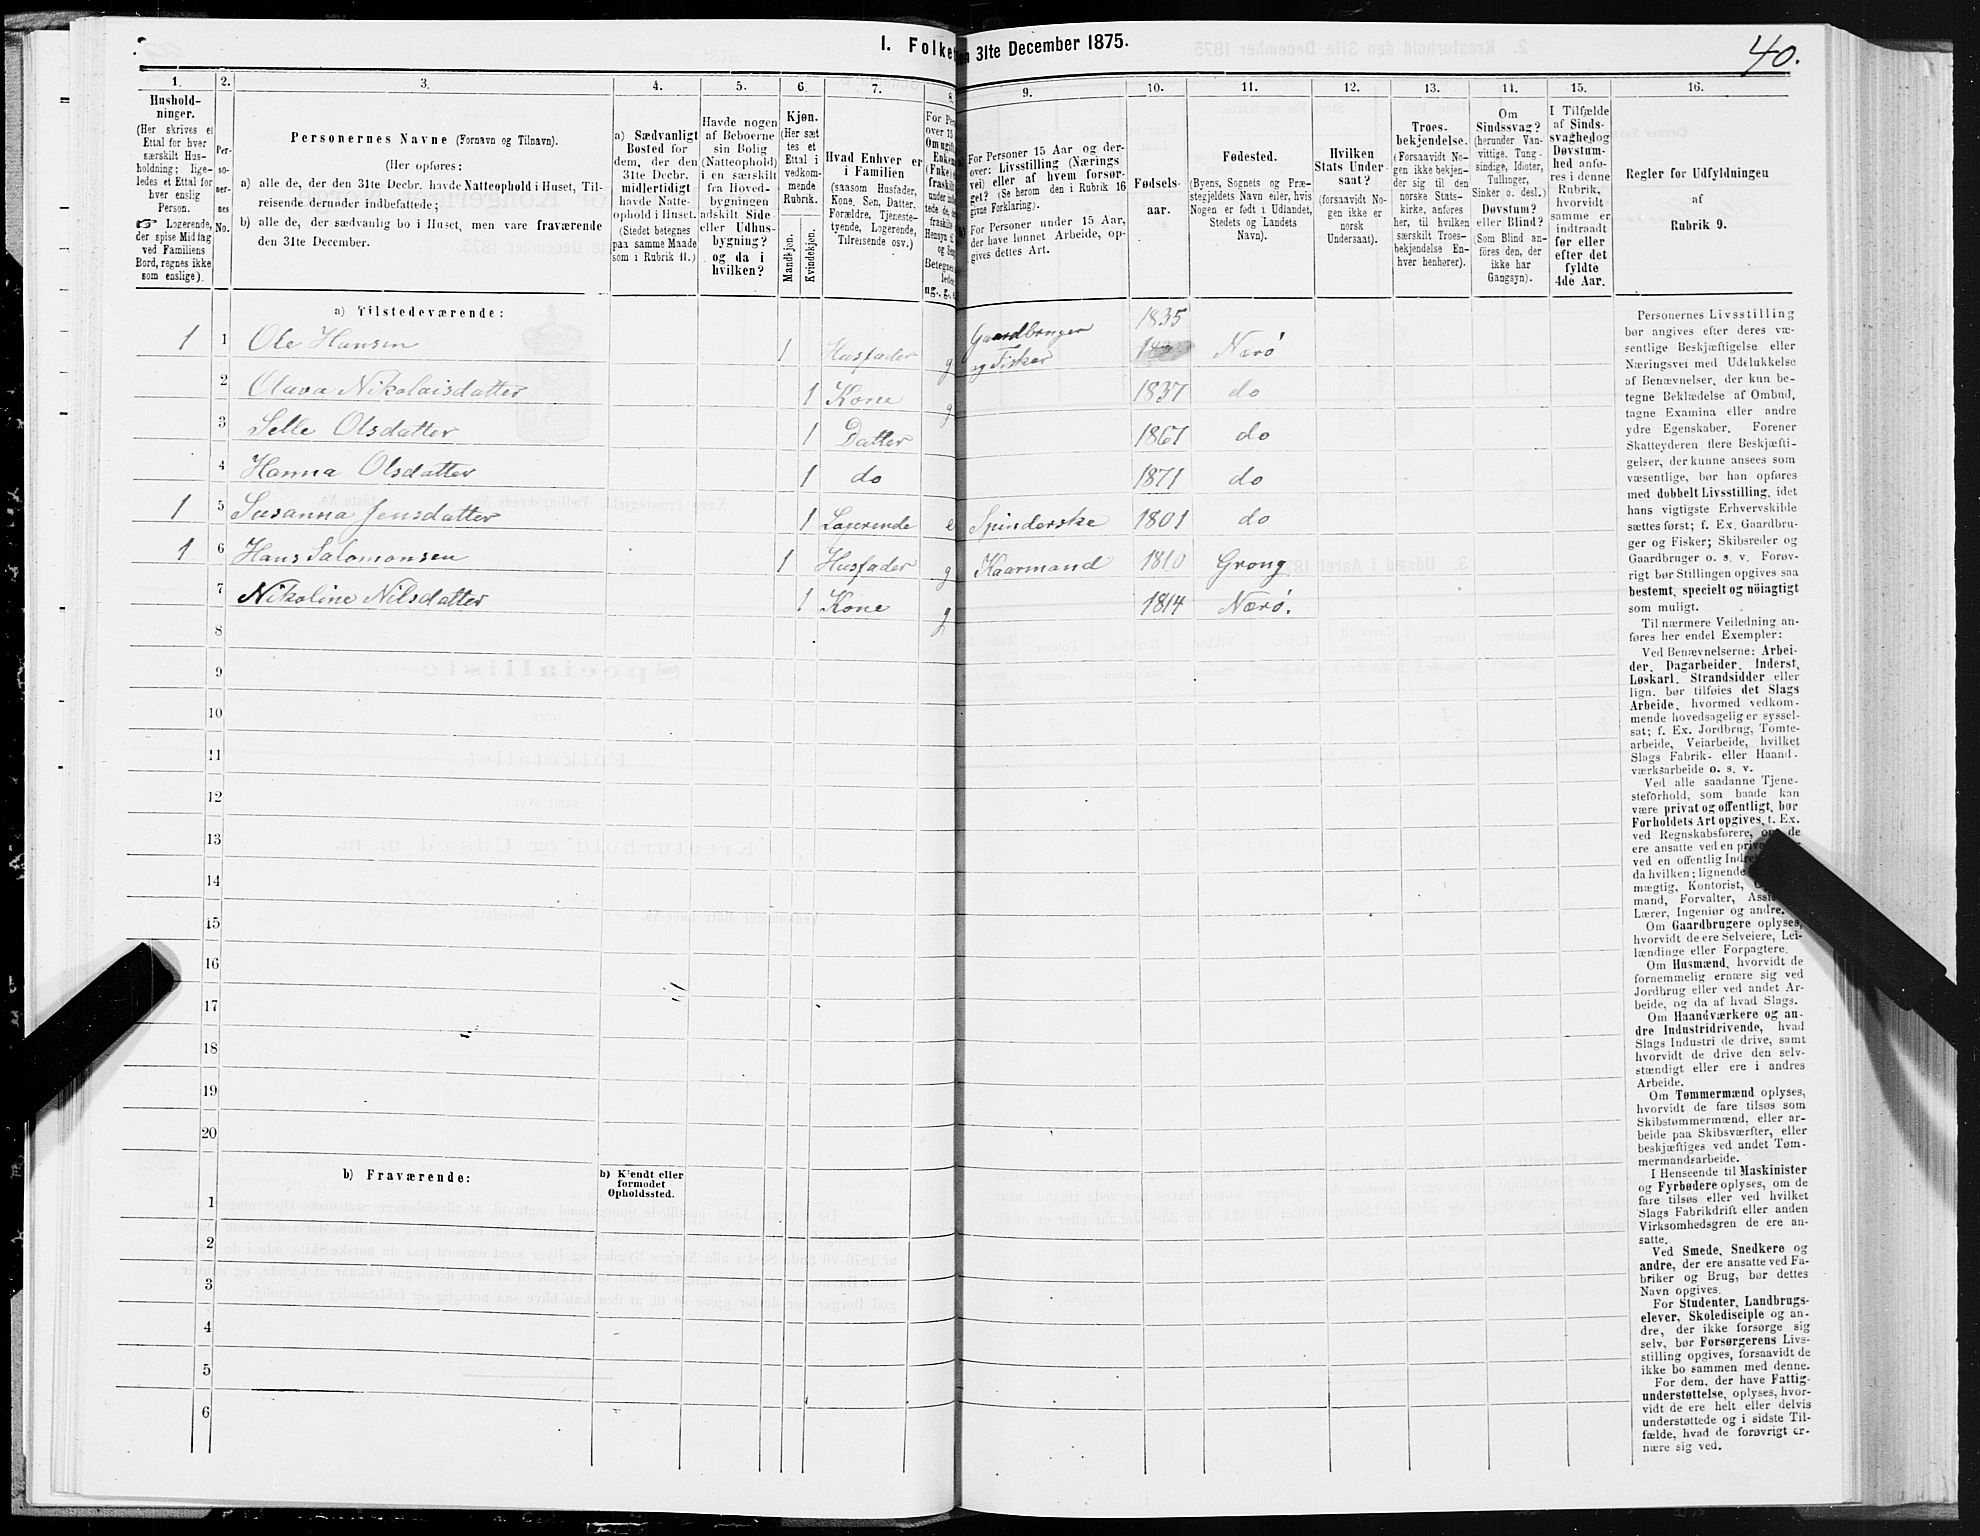 I. Folket
en 31te December 1875.
40.
1.
Hushold-
ninger.
(Her skrives et
Ettal for hver
særskilt Hus-
holdning; lige-
ledes et Ettal for
hver enslig
Person.
☞ Logerende,
der spise Middag
ved Familiens
Bord, regnes ikke
som enslige).
2.
Per-
so-
ner-
nes
No.
3.
Personernes Navne (Fornavn og Tilnavn).
(Her opføres:
a) alle de, der den 31te Decbr. havde Natteophold i Huset, Til-
reisende derunder indbefattede;
b) alle de, der sædvanlig bo i Huset, men vare fraværende
den 31te December.
4.
a) Sædvanligt
Bosted for
dem, der den
31te Decbr.
midlertidigt
havde Natte-
ophold i Huset.
(Stedet betegnes
paa samme Maade
som i Rubrik 11.)
5.
Havde nogen
af Beboerne
sin Bolig
(Natteophold)
i en særskilt
fra Hoved-
bygningen
adskilt Side-
eller Udhus-
bygning?
og da i
hvilken?
6.
Kjøn.
(Her sæt
tes et
Ettal i
vedkom-
mende
Rubrik.
Mandkjøn.
Kvindekjøn.
7.
Hvad Enhver er
i Familien
(saasom Husfader,
Kone, Søn, Datter,
Forældre, Tjeneste-
tyende, Logerende,
Tilreisende osv.)
8.
9.
For Personer 15 Aar og der-
over: Livsstilling (Nærings
vei) eller af hvem forsør-
get? (Se herom den i Rubrik 16
givne Forklaring).
For Personer under 15 Aar,
der have lønnet Arbeide, op-
gives dettes Art.
10.
Fødsels-
aar.
11.
Fødested.
(Byens, Sognets og Præ-
stegjeldets Navn eller, hvis
Nogen er født i Udlandet,
Stedets og Landets
Navn).
12.
Hvilken
Stats Under
saat?
(forsaavidt No-
gen ikke er
norsk
Undersaat).
13.
Troes-
bekjendelse.
(Forsaavidt No-
gen ikke bekjen-
der sig til den
norske Stats-
kirke, anføres
her, til hvilken
særskilt Troes-
bekjendelse En-
hver henhører).
14.
Om
Sindssvag?
(herunder Van-
vittige, Tung-
sindige, Idioter,
Tullinger,
Sinker o. desl.)
Døvstum?
eller Blind?
(Som Blind an-
føres den, der
ikke har
Gangsyn).
15.
I Tilfælde
af Sinds-
svaghed og
Døvstum-
hed anfø-
res i denne
Rubrik,
hvorvidt
samme er
indtraadt
før eller
efter det
fyldte
4de Aar.
16.
Regler for Udfyldningen
af
Rubrik 9.
a) Tilstedeværende:
1 1 Ole Hansen 1 Husfader g Gaardbruger og Fisker 1835 Nærø
2 Olava Nikolaisdatter 1 Kone g 1837 do
3 Selle Olsdatter 1 Datter 1867 do
4 Hanna Olsdatter 1 do 1871 do
1 5 Susanna Jensdatter 1 Logerende e Spinderske 1801 do
1 6 Hans Salomonsen 1 Husfader g Kaarmand 1810 Grong
7 Nikoline Nilsdatter 1 Kone g 1814 Nærø.
8
9
10
11
12
13
14
15
16
17
18
19
20
b) Fraværende:
b) Kjendt eller
formodet
Opholdssted.
1
2
3
4
5
6
Personernes Livsstilling
bør angives efter deres væ-
sentlige Beskjæftigelse eller
Næringsvei med Udelukkelse
af Benævnelser, der kun be-
tegne Beklædelse af Ombud,
tagne Examina eller andre
ydre Egenskaber. Forener
Skatteyderen flere Beskjæfti-
gelser, der kunne ansees som
væsentlige, bør han opføres
med dobbelt Livsstilling, idet
hans vigtigste Erhvervskilde
sættes først; f. Ex. Gaardbru-
ger og Fisker; Skibsreder og
Gaardbruger o. s. v. Forøv-
rigt bør Stillingen opgives saa
bestemt, specielt og nöiagtigt
som muligt.
Til nærmere Veiledning an-
føres her endel Exempler:
Ved Benævnelserne: Arbei-
der, Dagarbeider, Inderst,
Løskarl, Strandsidder eller
lign. bør tilføies det Slags
Arbeide, hvormed vedkom-
mende hovedsagelig er syssel-
sat; f. Ex. Jordbrug, Tomte-
arbeide, Veiarbeide, hvilket
Slags Fabrik- eller Haand-
værksarbeide o. s. v.
Ved alle saadanne Tjene-
steforhold, som baade kan
være privat og offentligt, bør
Forholdets Art opgives, t. Ex.
ved Regnskabsførere, om de
ere ansatte ved en
ved en offentlig
da hvilken; lignende
mægtig, Kontorist,
mand, Forvalter,
Lærer, Ingeniør og andre.
Om Gaardbrugere oplyses,
hvorvidt de ere Selveiere, Lei-
lændinge eller Forpagtere.
Om Husmænd, hvorvidt de
fornemmelig ernære sig ved
Jordbrug eller ved andet Ar-
beide, og da af hvad Slags.
Om Haandværkere og an-
dre Industridrivende, hvad
Slags Industri de drive, samt
hvorvidt de drive den selv-
stændigt eller ere i andres
Arbeide.
Om Tømmermænd oplyses,
hvorvidt de fare tilsøs som
Skibstømmermænd, eller ar-
beide paa Skibsværfter, eller
beskjæftiges ved andet Tøm-
mermandsarbeide.
I Henseende til Maskinister
og Fyrbødere oplyses, om de
fare tilsøs eller ved hvilket
Slags Fabrikdrift eller anden
Virksomhedsgren de ere an-
satte.
Ved Smede, Snedkere og
andre, der ere ansatte ved Fa-
briker og Brug, bør dettes
Navn opgives.
For Studenter, Landbrugs-
elever, Skoledisciple og an-
dre, der ikke forsørge sig
selv, bør Forsørgerens Livs-
stilling opgives, forsaavidt de
ikke bo sammen med denne.
For dem, der have Fattig-
understøttelse, oplyses, hvor-
vidt de ere helt eller delvis
understøttede og i sidste Til-
fælde, hvad de forøvrigt er-
nære sig ved.